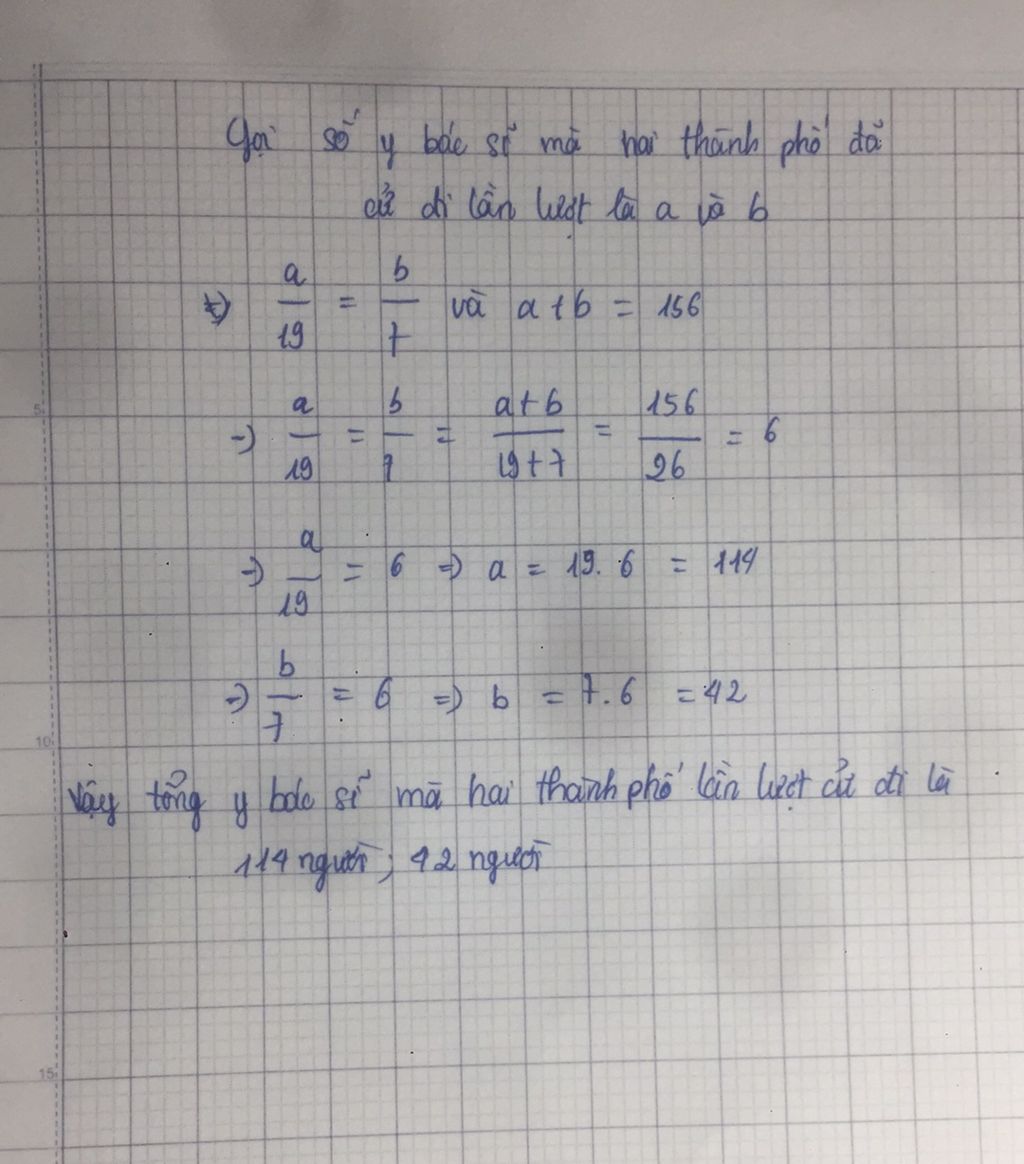 Gọi số y bác sĩ mà hai thành phố đã
cử đi lần lượt là a và b
=) a/19 = b/7 và a+b = 156
=) a/19 = b/7 = a+b/19+7 = 156/26 = 6
=) a/19 = 6 =) a = 19.6 = 114
=) b/7 = 6 =) b = 7.6 = 42
Vậy tổng y bác sĩ mà hai thành phố lần lượt cử đi là
114 người; 42 người
5
10
15